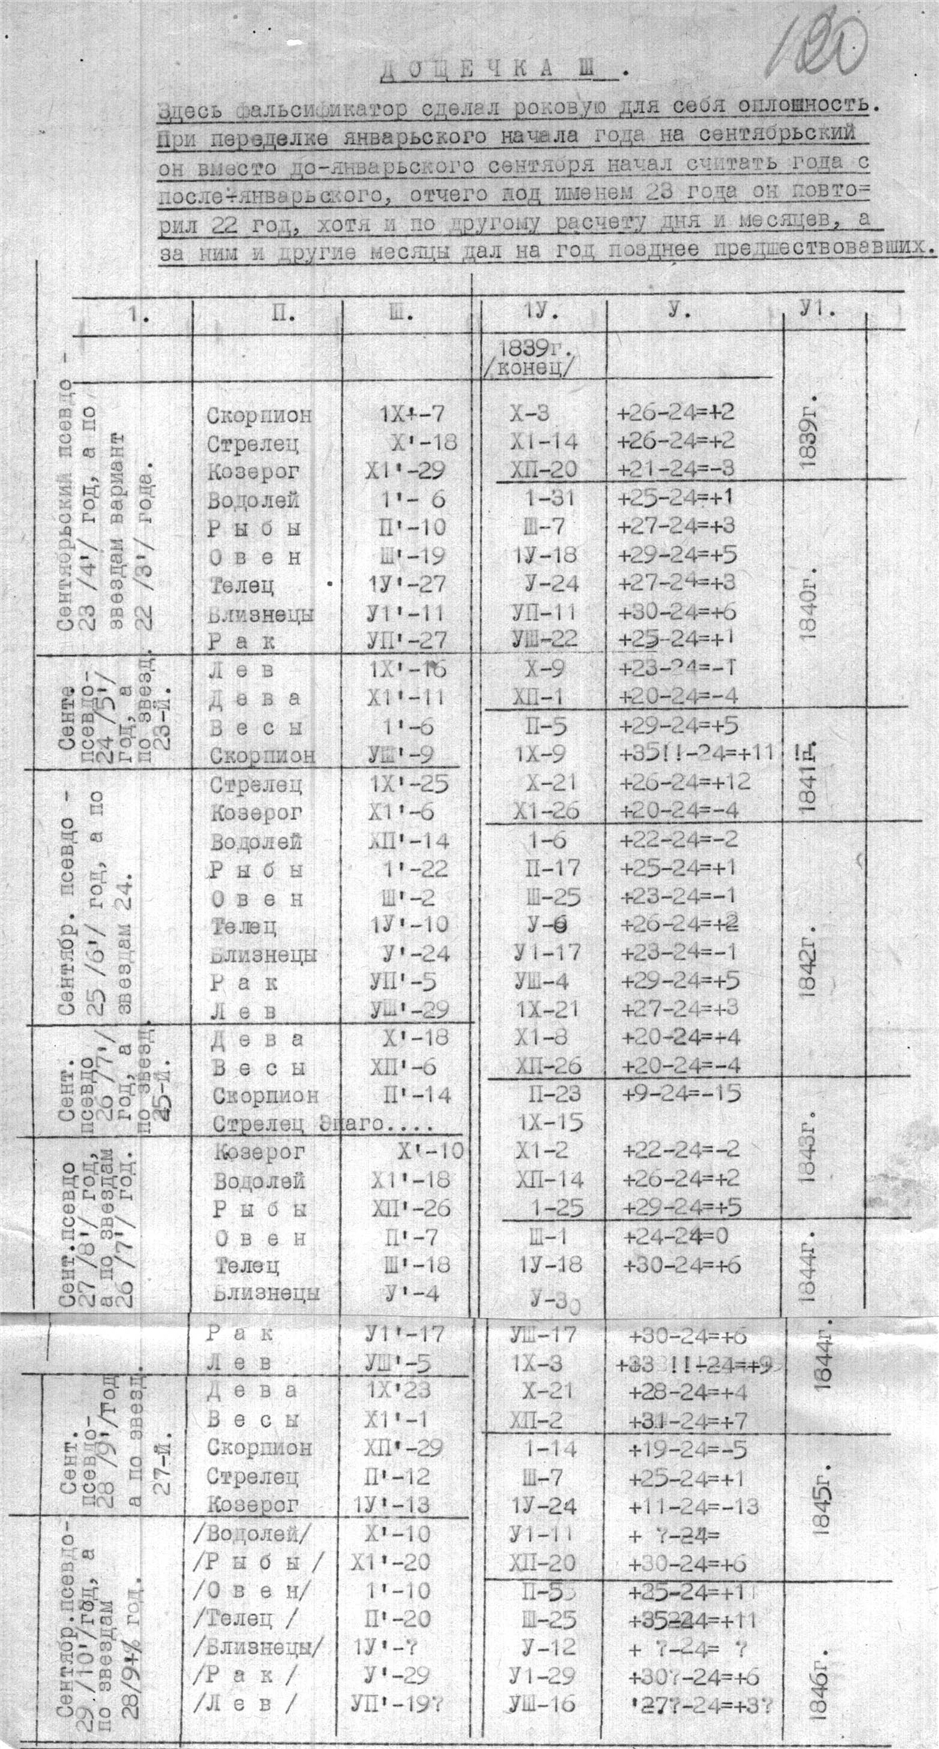 120
ДОЩЕЧКА Ш.
Здесь фальсификатор сделал роковую для себя оплошность.
При переделке январьского начала года на сентябрьский
он вместо до-январьского сентября начал считать года с
после-январьского, отчего под именем 23 года он повто=
рил 22 год, хотя и по другому расчету дня и месяцев, а
за ним и другие месяцы дал на год позднее предшествовавших.
1. П. Ш. 1У. У. У1.
1839г.
/конец/
Сентябрьский псевдо -
23 /4'/ год, а по
звездам вариант
22 /3'/ года.
Скорпион 1Х'-7 Х-3 +26-24=+2
Стрелец Х'-18 Х1-14 +26-24=+2
Козерог Х1'-29 ХП-20 +21-24=-3
1839г.
Водолей 1'- 6 1-31 +25-24=+1
Рыбы П'-10 Ш-7 +27-24=+3
Овен Ш'-19 1У-18 +29-24=+5
Телец 1У'-27 У-24 +27-24=+3
Близнецы У1'-11 УП-11 +30-24=+6
Рак УП'-27 УШ-22 +25-24=+1
1840г.
Сенте.
псевдо-
24 /5'/
год, а
по звезд.
23-й.
Лев 1Х'-16 Х-9 +23-24=-1
Дева Х1'-11 ХП-1 +20-24=-4
Весы 1'-6 П-5 +29-24=+5
Скорпион УШ'-9 1Х-9 +35!!-24=+11 !!
1841г.
Сентябр. псевдо -
25 /6'/ год, а по
звездам 24.
Стрелец 1Х'-25 Х-21 +26-24=+12
Козерог Х1'-6 Х1-26 +20-24=-4
Водолей ХП'-14 1-6 +22-24=-2
Рыбы 1'-22 П-17 +25-24=+1
Овен Ш'-2 Ш-25 +23-24=-1
Телец 1У'-10 У-6 +26-24=+2
Близнецы У'-24 У1-17 +23-24=-1
Рак УП'-5 УШ-4 +29-24=+5
Лев УШ'-29 1Х-21 +27-24=+3
1842г.
Сент.
псевдо
26 /7'/
год, а
по звезд.
25-й.
Дева Х'-18 Х1-8 +20-24=+4
Весы ХП'-6 ХП-26 +20-24=-4
Скорпион П'-14 П-23 +9-24=-15
Стрелец Энаго.... 1Х-15
1843г.
Сент.псевдо
27 /8'/ год,
а по звездам
26 /7'/ год.
Козерог Х'-10 Х1-2 +22-24=-2
Водолей Х1'-18 ХП-14 +26-24=+2
Рыбы ХП'-26 1-25 +29-24=+5
Овен П'-7 Ш-1 +24-24=0
Телец Ш'-18 1У-18 +30-24=+6
Близнецы У'-4 У-30
1844г.
Рак У1'-17 УШ-17 +30-24=+6
Лев УШ'-5 1Х-3 +33 !!-24=+9
1844г.
Сент.
псевдо-
28 /9'/год
а по звезд.
27-й.
Дева 1Х'23 Х-21 +28-24=+4
Весы Х1'-1 ХП-2 +31-24=+7
Скорпион ХП'-29 1-14 +19-24=-5
Стрелец П'-12 Ш-7 +25-24=+1
Козерог 1У'-13 1У-24 +11-24=-13
1845г.
Сентябр.псевдо-
29 /10'/год, а
по звездам
28/9'/ год.
/Водолей/ Х'-10 У1-11 + ?-24=
/Рыбы/ Х1'-20 ХП-20 +30-24=+6
/Овен/ 1'-10 П-5 +25-24=+1
/Телец / П'-20 Ш-25 +35-24=+11
/Близнецы/ 1У'-? У-12 + ?-24= ?
/Рак/ У'-29 У1-29 +30?-24=+6
/Лев/ УП'-19? УШ-16 '27?-24=+3?
1846г.